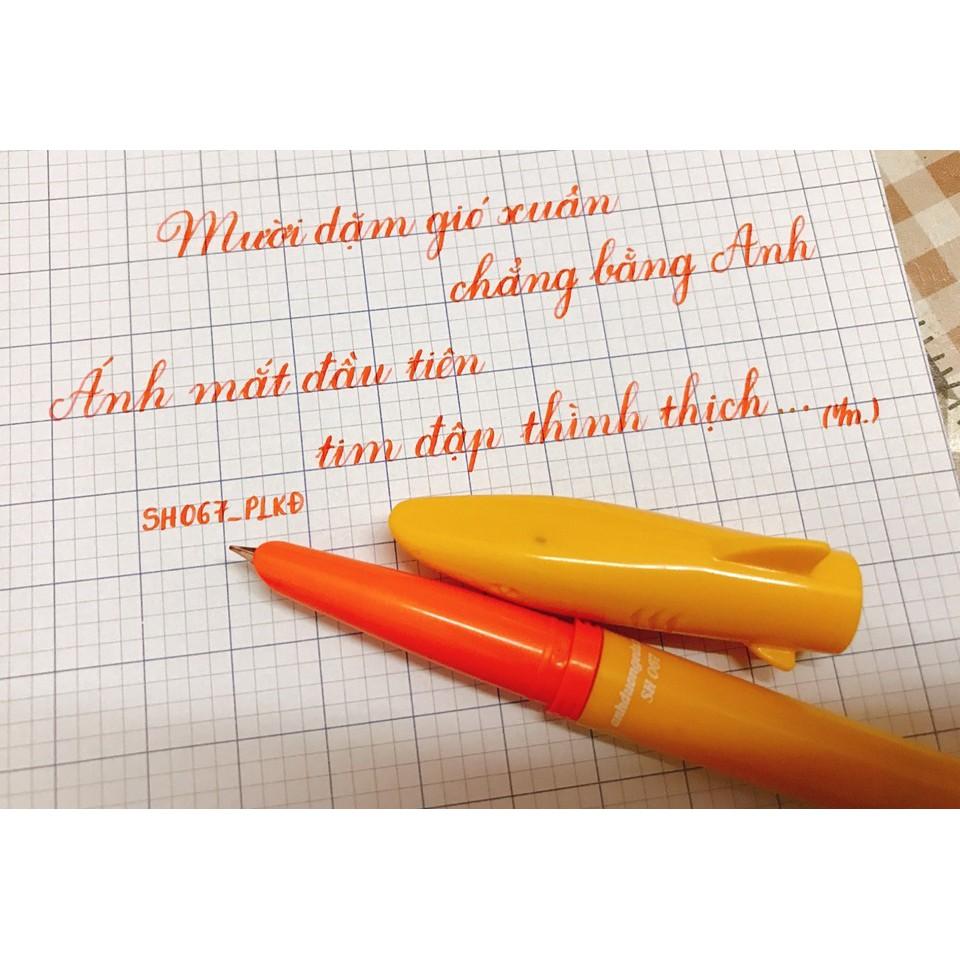 Mười dặm gió xuân
chẳng bằng Anh
Ánh mắt đầu tiên
tim đập thình thịch... 
SH067_PLKĐ
SH 067